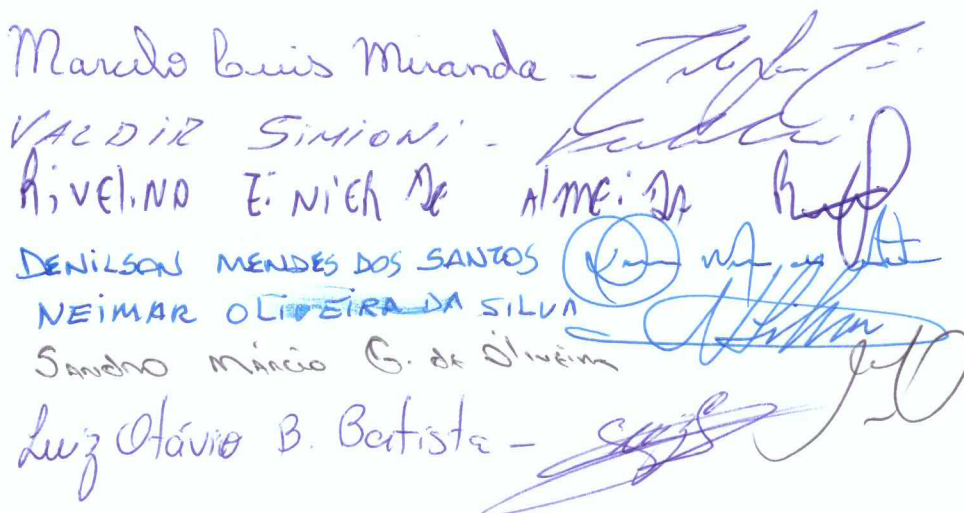 Marcelo Luis Miranda -
VALDIR SIMIONI -
RIVELINO EiNiCK De AlMEiDA
DENILSON MENDES DOS SANTOS
NEIMAR OLIVEIRA DA SILVA
Sandro Márcio G. de Oliveira
Luiz Otávio B. Batista -